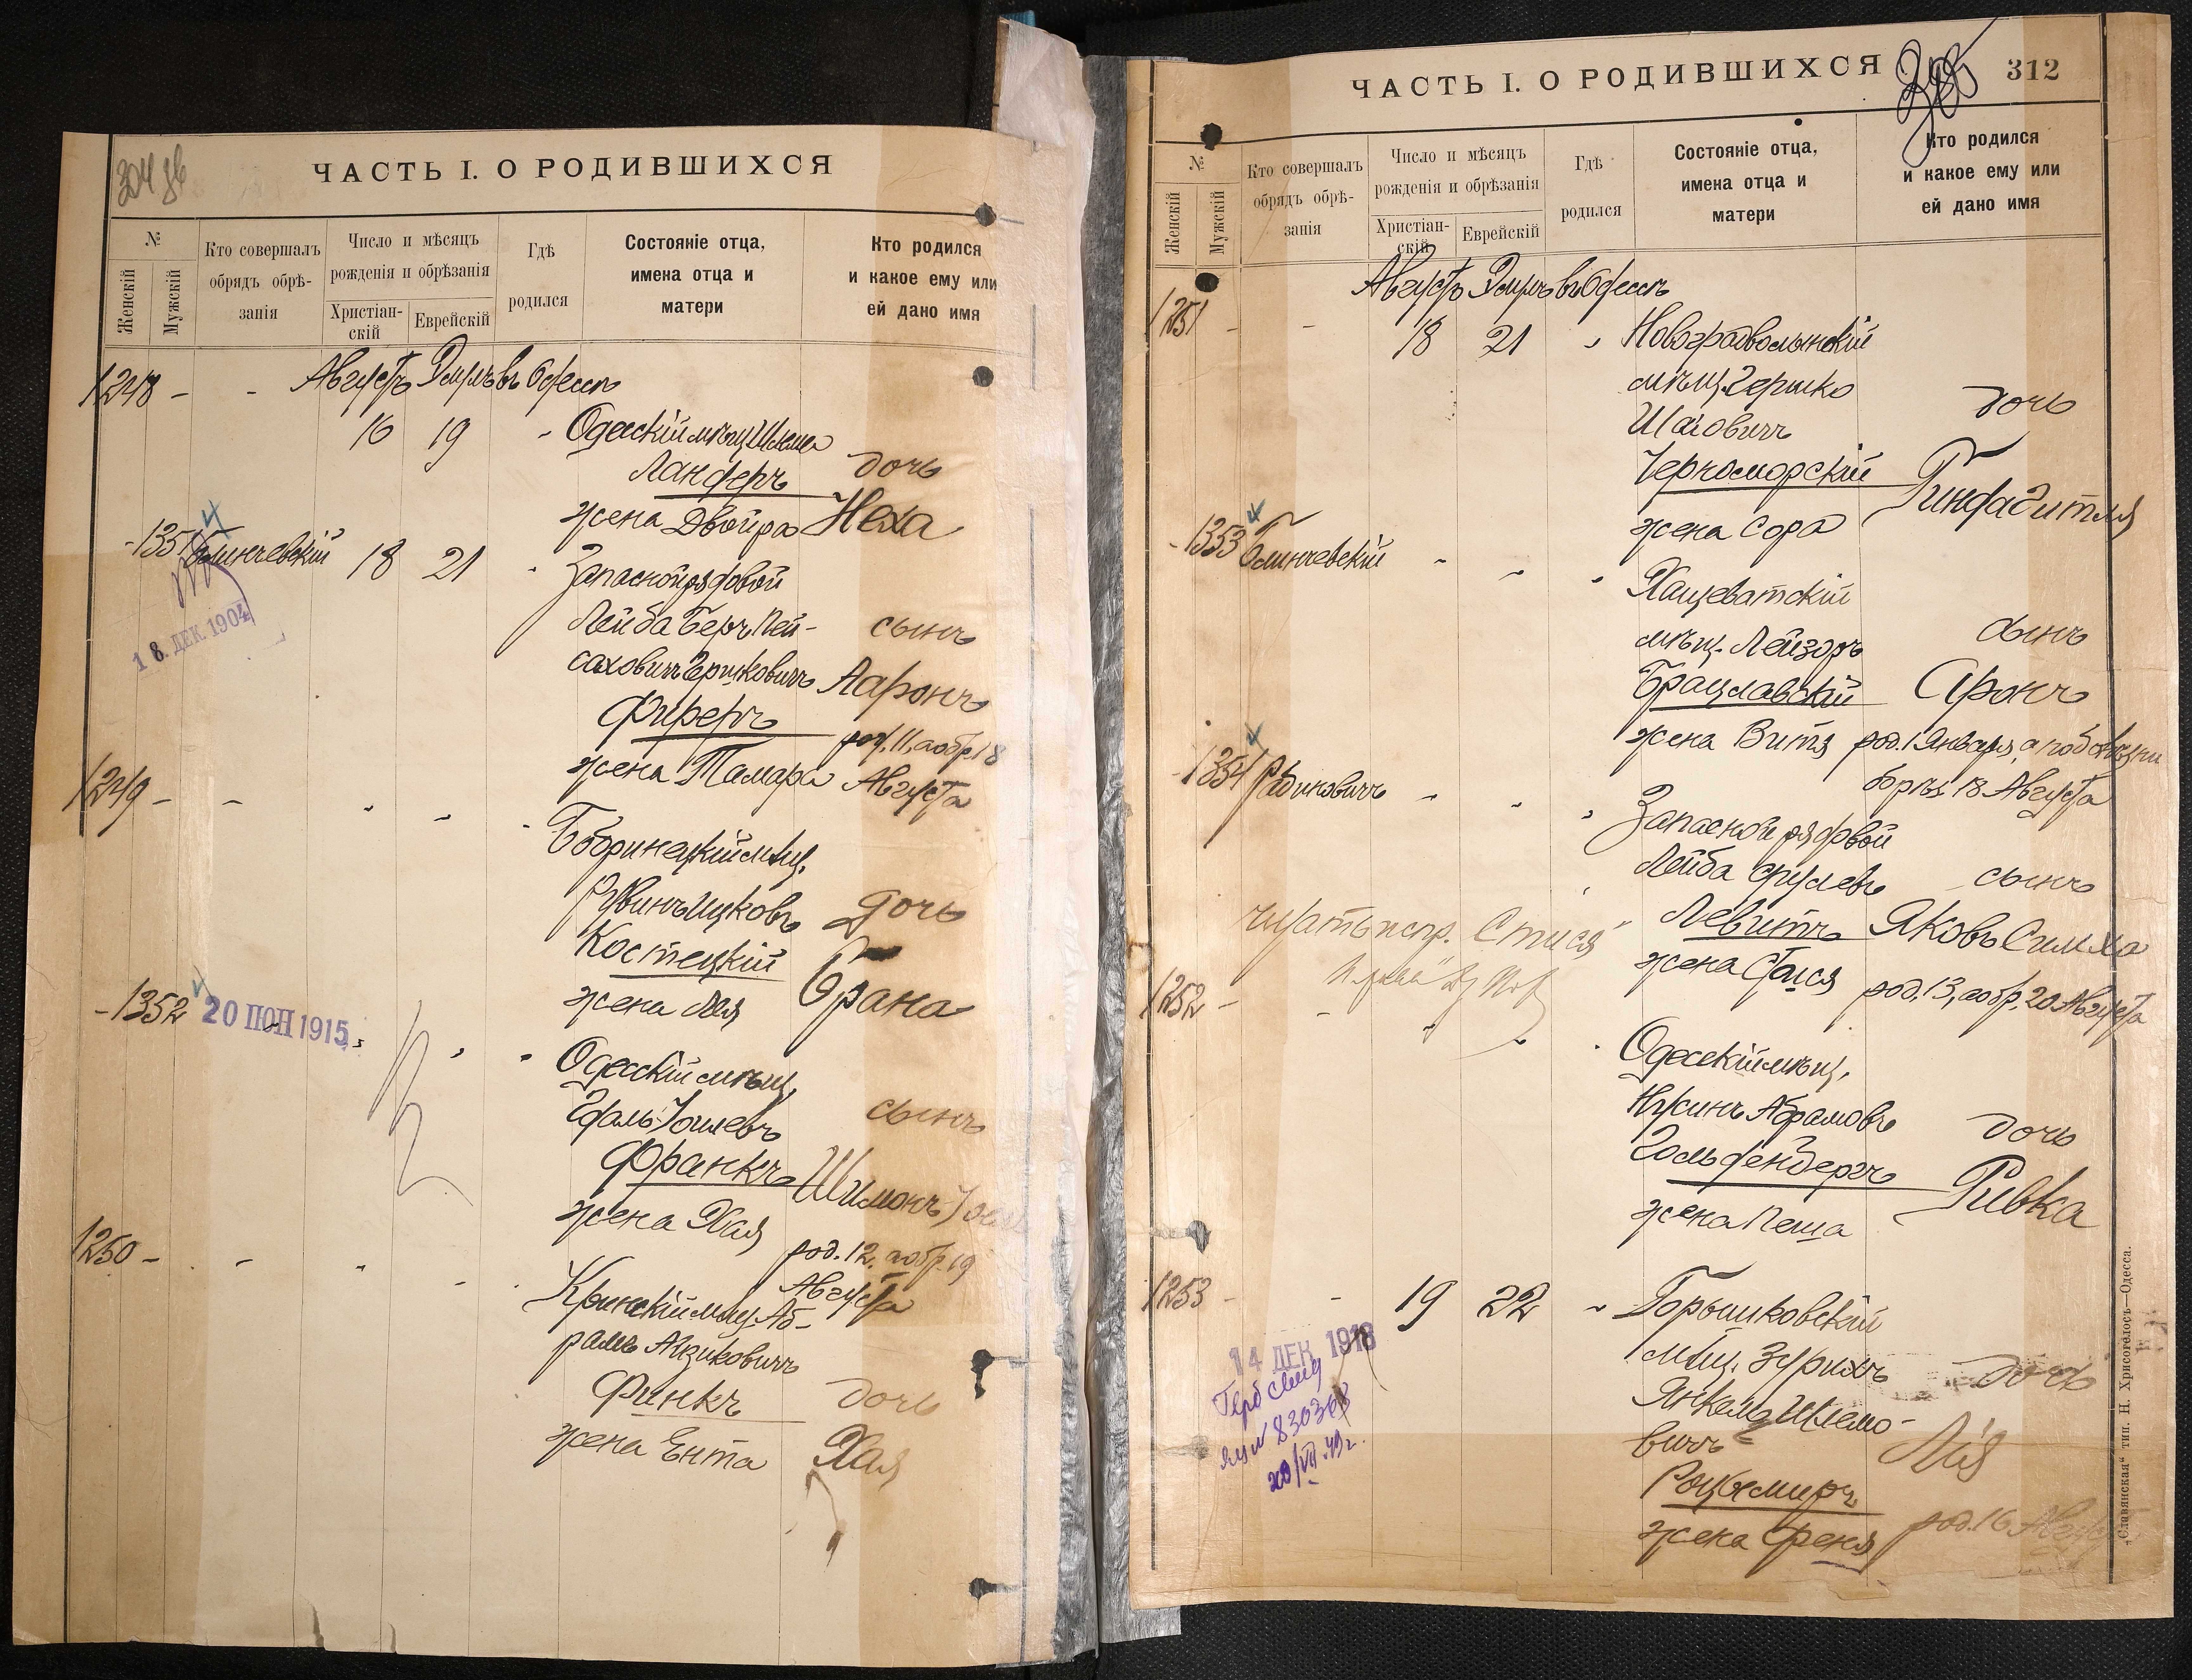 304 об
ЧАСТЬ I. О РОДИВШИХСЯ
№
Женскій
Мужскій
Кто совершалъ
обрядъ обрѣ-
занія
Число и мѣсяцъ
рожденія и обрѣзанія
Христіан-
скій
Еврейскій
Гдѣ
родился
Состояніе отца,
имена отца и
матери
Кто родился
и какое ему или
ей дано имя
Августъ Элулъ въ Одессѣ
1248 - -
16 19 - Одесскій мѣщ Шлема
Ланферъ дочь
жена Двойра Неха
-1351 Блинчевскій 18 21 Запасной рядовой
18. ДЕК. 1904
Лейба Беръ Пей- сынъ
саховичъ Гершковичъ Ааронъ
Фиреръ род. 11, а обр 18
жена Тамара Августа
1249 - -
Бобринецкій мѣщ.
Рувинъ Ицковъ дочь
Костецкій Брана
жена Лея
-1352 20 ІЮН 1915
Одесскій мѣщ.
Гдаль Іошевъ сынъ
Франкъ Шимонъ
жена Хая
род. 12, а обр. 19
Августа
1250 - -
Крынскій мѣщ. Аб-
рамъ Айзиковичъ
Финкъ дочь
жена Ента Хая
ЧАСТЬ I. О РОДИВШИХСЯ
305
312
№
Женскій
Мужскій
Кто совершалъ
обрядъ обрѣ-
занія
Число и мѣсяцъ
рожденія и обрѣзанія
Христіан-
скій
Еврейскій
Гдѣ
родился
Состояніе отца,
имена отца и
матери
Кто родился
и какое ему или
ей дано имя
Августъ Элулъ въ Одессѣ
1251 - - 18 21 Новоградволынскій
мѣщ. Гершко
Шаговичъ дочь
Черноморскій
жена Сора
-1353 Блинчевскій - -
Хащеватскій
мѣщ. Лейзоръ сынъ
Брацлавскій Аронъ
жена Витя род. 1 Января, а
18 Августа
-1354 Рабиновичъ - -
Запасной рядовой
Лейба Срулевъ сынъ
Левитъ Яковъ Симха
жена Стися род. 13, а обр. 20 Августа
читать испр. "Стися"
1252 - -
Одесскій мѣщ.
Нусинъ Абрамовъ дочь
Гольденбергъ
жена Пеша Ривка
1253 - - 19 22 - Горышковскій
мѣщ. Зурихъ дочь
Янкель Шлемо-
вичъ Лія
жена Феня род. 16 Августа
14 ДЕК 1918
№ 830368
20/VII.49 г.
„Славянская" тип. Н. Хрисогелосъ—Одесса.